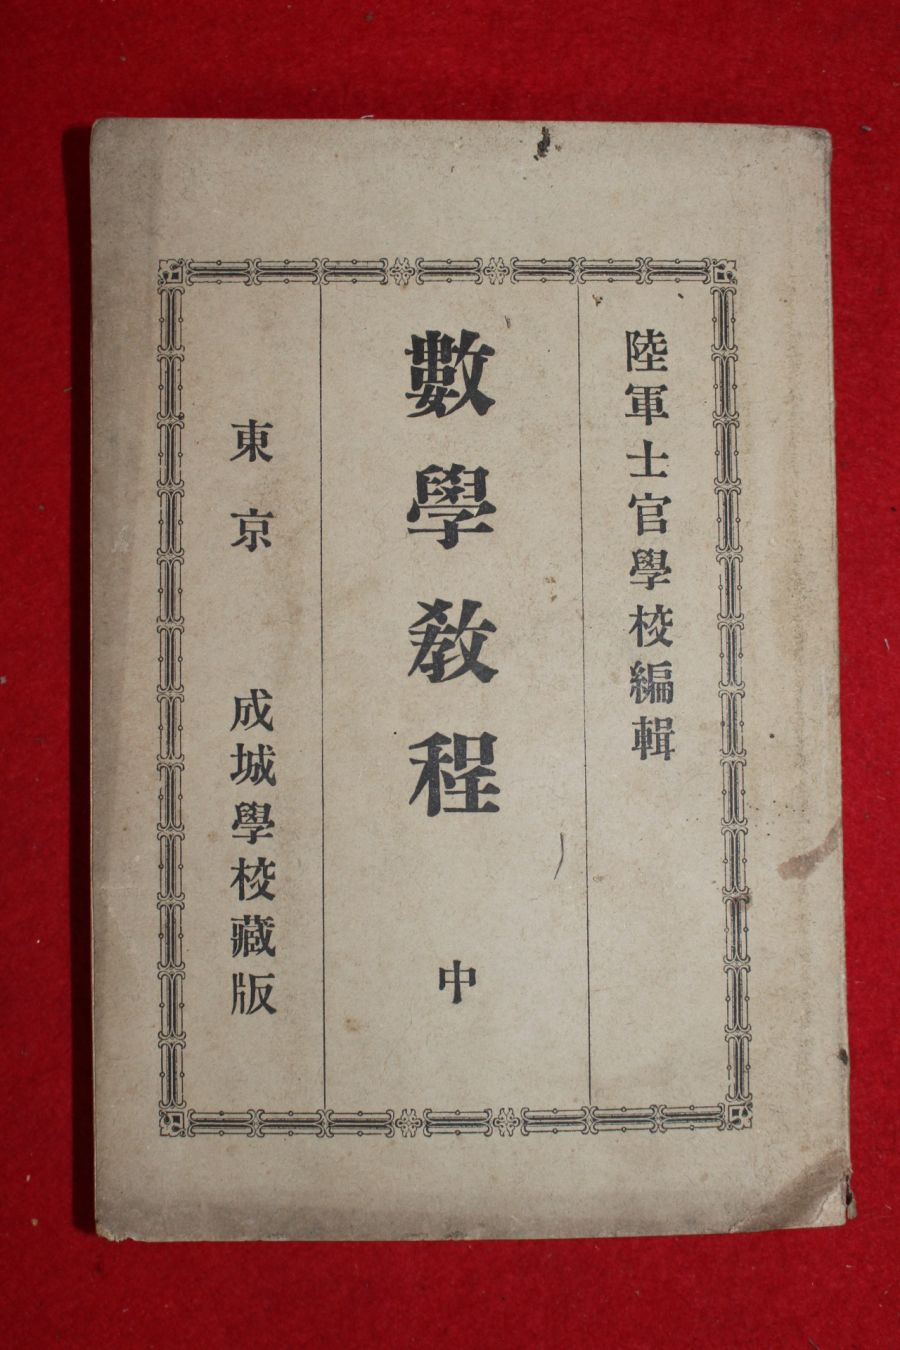 陸軍士官學校編輯
數學教程 中
東京 成城學校藏版